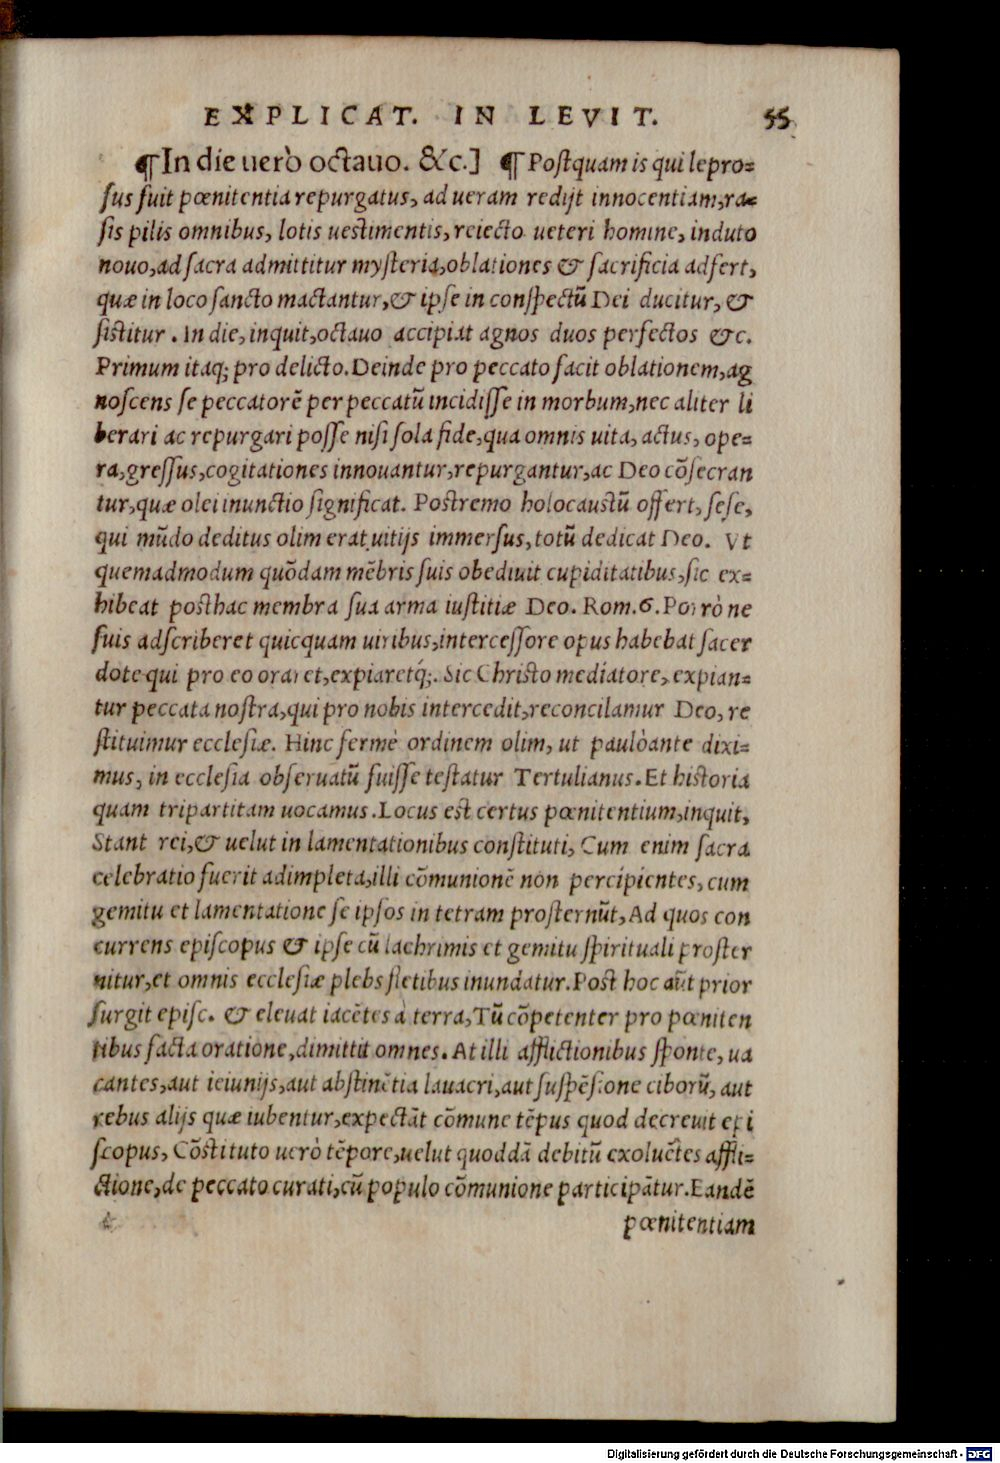 EXPLICAT. IN LEVIT. 55
¶In die uerò octauo. &c.] ¶ Postquam is qui lepro=
sus fuit pœnitentia repurgatus, ad ueram redijt innocentiam, ra=
sis pilis omnibus, lotis uestimentis, reiecto ueteri homine, induto
nouo, ad sacra admittitur mysteria, oblationes & sacrificia adfert,
quæ in loco sancto mactantur, & ipse in conspectũ Dei ducitur, &
sistitur. In die, inquit, octauo accipiat agnos duos perfectos &c.
Primum itaq; pro delicto. Deinde pro peccato facit oblationem, ag
noscens se peccatorẽ per peccatũ incidisse in morbum, nec aliter li
berari ac repurgari posse nisi sola fide, qua omnis uita, actus, ope=
ra, gressus, cogitationes innouantur, repurgantur, ac Deo cõsecran
tur, quæ olei inunctio significat. Postremo holocaustũ offert, sese,
qui mũdo deditus olim erat uitijs immersus, totũ dedicat Deo. Vt
quemadmodum quõdam mẽbris suis obediuit cupiditatibus, sic ex=
hibeat posthac membra sua arma iustitiæ Deo. Rom. 6. Porrò ne
suis adscriberet quicquam uiribus, intercessore opus habebat sacer
dote qui pro eo oraret, expiaretq́;. Sic Christo mediatore, expian=
tur peccata nostra, qui pro nobis intercedit, reconcilamur Deo, re
stituimur ecclesiæ. Hinc fermè ordinem olim, ut paulòante dixi=
mus, in ecclesia obseruatũ fuisse testatur Tertulianus. Et historia
quam tripartitam uocamus. Locus est certus pœnitentium, inquit,
Stant rei, & uelut in lamentationibus constituti, Cum enim sacra
celebratio fuerit adimpleta, illi cõmunionẽ non percipientes, cum
gemitu et lamentatione se ipsos in tetram prosternũt, Ad quos con
currens episcopus & ipse cũ lachrimis et gemitu spirituali proster
nitur, et omnis ecclesiæ plebs fletibus inundatur. Post hoc aũt prior
surgit episc. & eleuat iacẽtes à terra, Tũ cõpetenter pro pœniten
tibus facta oratione, dimittit omnes. At illi afflictionibus sponte, ua
cantes, aut ieiunijs, aut abstinẽtia lauacri, aut suspẽsione ciborũ, aut
rebus alijs quæ iubentur, expectãt cõmune tẽpus quod decreuit epi
scopus, Cõstituto uerò tẽpore, uelut quoddã debitũ exoluẽtes affli=
ctione, de peccato curati, cũ populo cõmunione participãtur. Eandẽ
pœnitentiam
Digitalisierung gefördert durch die Deutsche Forschungsgemeinschaft - DFG